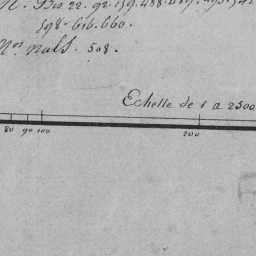 N. Bis 22. 92. 159. 488.
598. 616. 660.
Nos nuls. 508.
Echelle de 1 a 2500
80 90 100 200